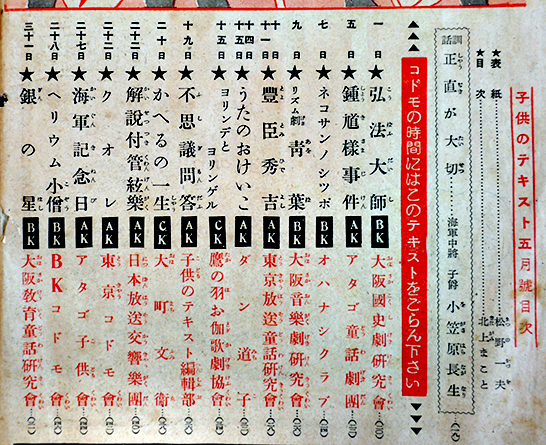 子供のテキスト五月號目次
★表紙……松野一夫
★目次……北上まこと
訓話 正直が大切……海軍中將 子爵 小笠原長生
コドモの時間にはこのテキストをごらん下さい
一日★弘法大師 BK 大阪國史劇研究會
五日★鍾道樣事件 AK アタゴ童話劇團
七日★ネコサンノシツポ BK オハナシクラブ
九日★リズム劇 靑葉 BK 大阪音樂劇硏究會
十一日★豐臣秀吉 AK 東京放送童話硏究會
十四日 十五日★うたのおけいこ AK ダン道子
ヨリンデとヨリンゲル CK 鷹の羽お伽歌劇協會
十九日★不思議問答 AK 子供のテキスト編輯部
二十日★かへるの一生 CK 大町文衛
二十二日★解說付管絃樂 AK 日本放送交響樂團
★クオレ AK 東京コドモ會
二十七日★海軍記念日 AK アタゴ子供會
二十八日★ヘリウム小僧 BK BKコドモ會
三十一日★銀の星 BK 大阪敎育童話硏究會